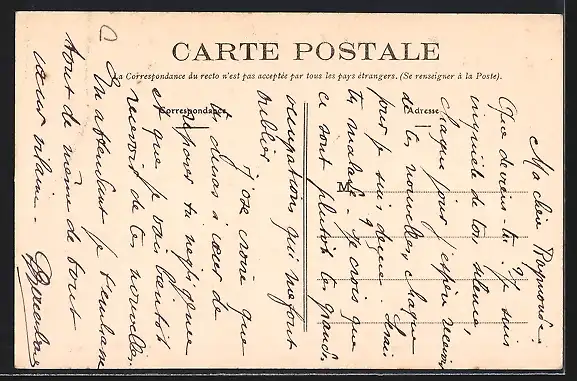 CARTE POSTALE
La Correspondance du recto n'est pas acceptée par tous les pays étrangers. (Se renseigner à la Poste).
Correspondance
Adresse
M
Ma chère Raymonde.
Que deviens-tu ? Je suis
inquiète de ton silence,
chaque jour j'espère recevoir
de tes nouvelles, chaque
jour je suis déçue. Serais
tu malade. Je crois que
ce sont plutôt tes grandes
occupations qui me font
oublier
J'ose croire que
tu auras à cœur de
réparer ta négligence
et que je vais bientôt
recevoir de tes nouvelles.
En attendant je t'embrasse
tout de même de tout
cœur vilaine.